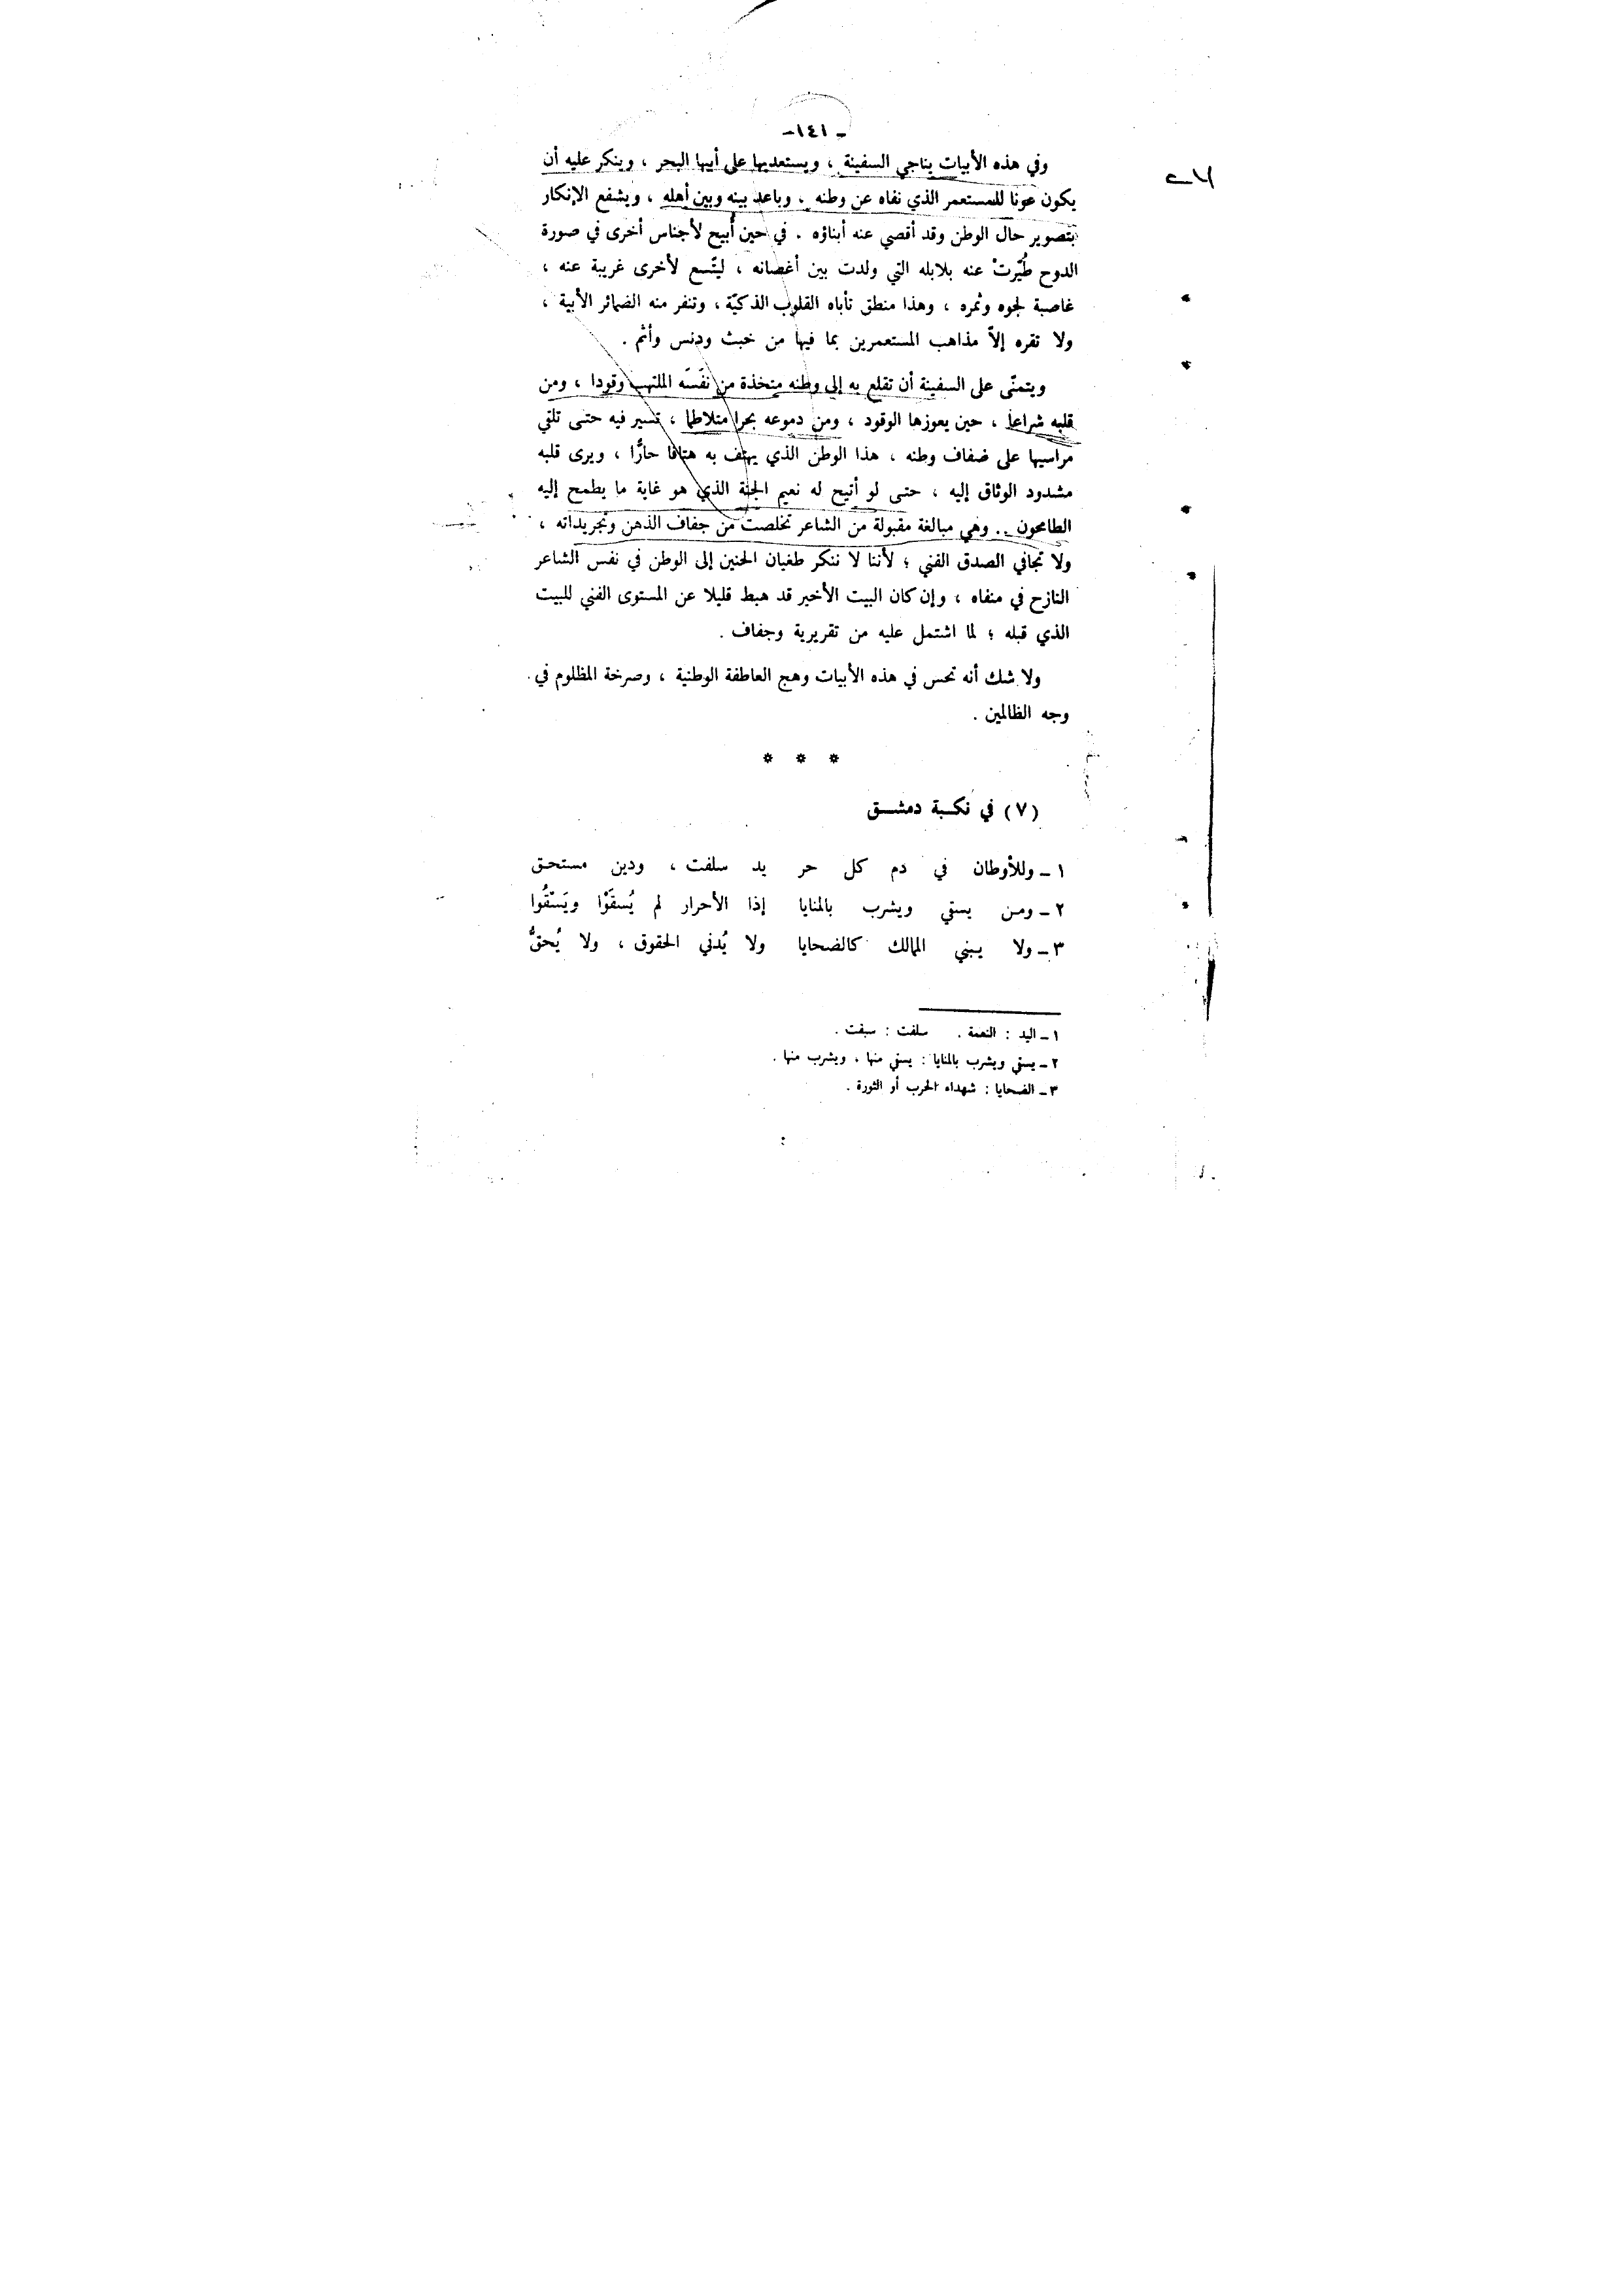 - ١٤١ -
وفي هذه الأبيات يناجي السفينة ، ويستعديها على أبيها البحر ، وينكر عليه أن
يكون عونا للمستعمر الذي نفاه عن وطنه ، وباعد بينه وبين أهله ، ويشفع الإنكار
بتصوير حال الوطن وقد أقصي عنه أبناؤه . في حين أُبيح لأجناس أخرى في صورة
الدوح طُيّرتْ عنه بلابله التي ولدت بين أغصانه ، ليتّسع لأخرى غريبة عنه ،
غاصبة لجوه وثمره ، وهذا منطق تأباه القلوب الذكيّة ، وتنفر منه الضمائر الأبية ،
ولا تقره إلاّ مذاهب المستعمرين بما فيها من خبث ودنس وأثم .
ويتمنّى على السفينة أن تقلع به إلى وطنه متخذة من نفَسَه الملتهب وقودا ، ومن
قلبه شراعا ، حين يعوزها الوقود ، ومن دموعه بحرا متلاطما ، تسير فيه حتى تلقي
مراسيها على ضفاف وطنه ، هذا الوطن الذي يهتف به هتافا حارًّا ، ويرى قلبه
مشدود الوثاق إليه ، حتى لو أتيح له نعيم الجنة الذي هو غاية ما يطمح إليه
الطامحون .. وهي مبالغة مقبولة من الشاعر تخلصت من جفاف الذهن وتجريداته ،
ولا تجافي الصدق الفني ؛ لأننا لا ننكر طغيان الحنين إلى الوطن في نفس الشاعر
النازح في منفاه ، وإن كان البيت الأخير قد هبط قليلا عن المستوى الفني للبيت
الذي قبله ؛ لما اشتمل عليه من تقريرية وجفاف .
ولا شك أنه تحس في هذه الأبيات وهج العاطفة الوطنية ، وصرخة المظلوم في
وجه الظالمين .
* * *
(٧) في نكبة دمشق
١ - وللأوطان في دم كل حر يد سلفت ، ودين مستحق
٢ - ومن يسقي ويشرب بالمنايا إذا الأحرار لم يُسقَوْا ويَسْقُوا
٣ - ولا يبني الممالك كالضحايا ولا يُدني الحقوق ، ولا يُحقُّ
١ - اليد : النعمة . سلفت : سبقت .
٢ - يسقي ويشرب بالمنايا : يسقي منها ، ويشرب منها .
٣ - الضحايا : شهداء الحرب أو الثورة .